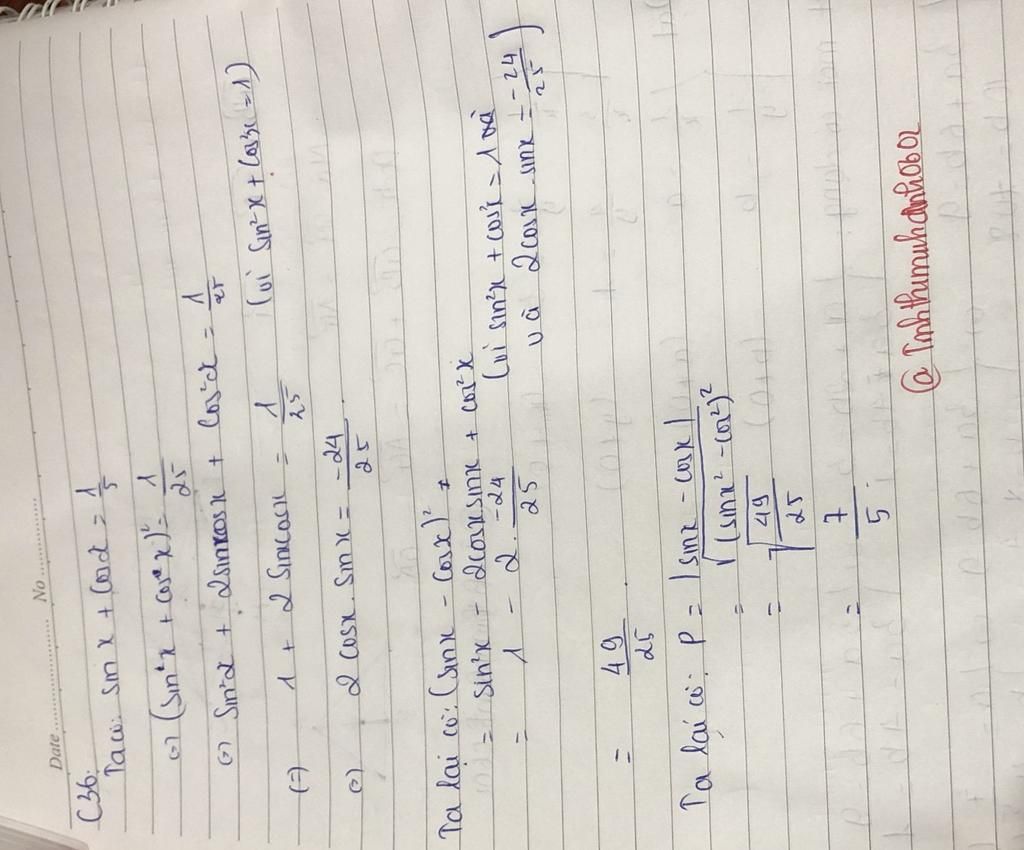 Date ............ No ............
C36:
Ta có: sin x + cosx = 1/5
(=) (sin²x + cos²x)² = 1/25
(=) sin²x + 2sinxcosx + cos²x = 1/25
(=) 1 + 2 sinxcosx = 1/25 (vì sin²x + cos²x = 1)
(=) 2 cosx . sinx = -24/25
Ta lại có: (sinx - cosx)²
= sin²x - 2cosxsinx + cos²x
= 1 - 2 . -24/25 (vì sin²x + cos²x = 1 và
và 2cosx . sinx = -24/25)
= 49/25
Ta lại có: P = |sinx - cosx|
= √(sinx² - cos²)²
= √49/25
= 7/5
@Tinhthimuhdnh0602